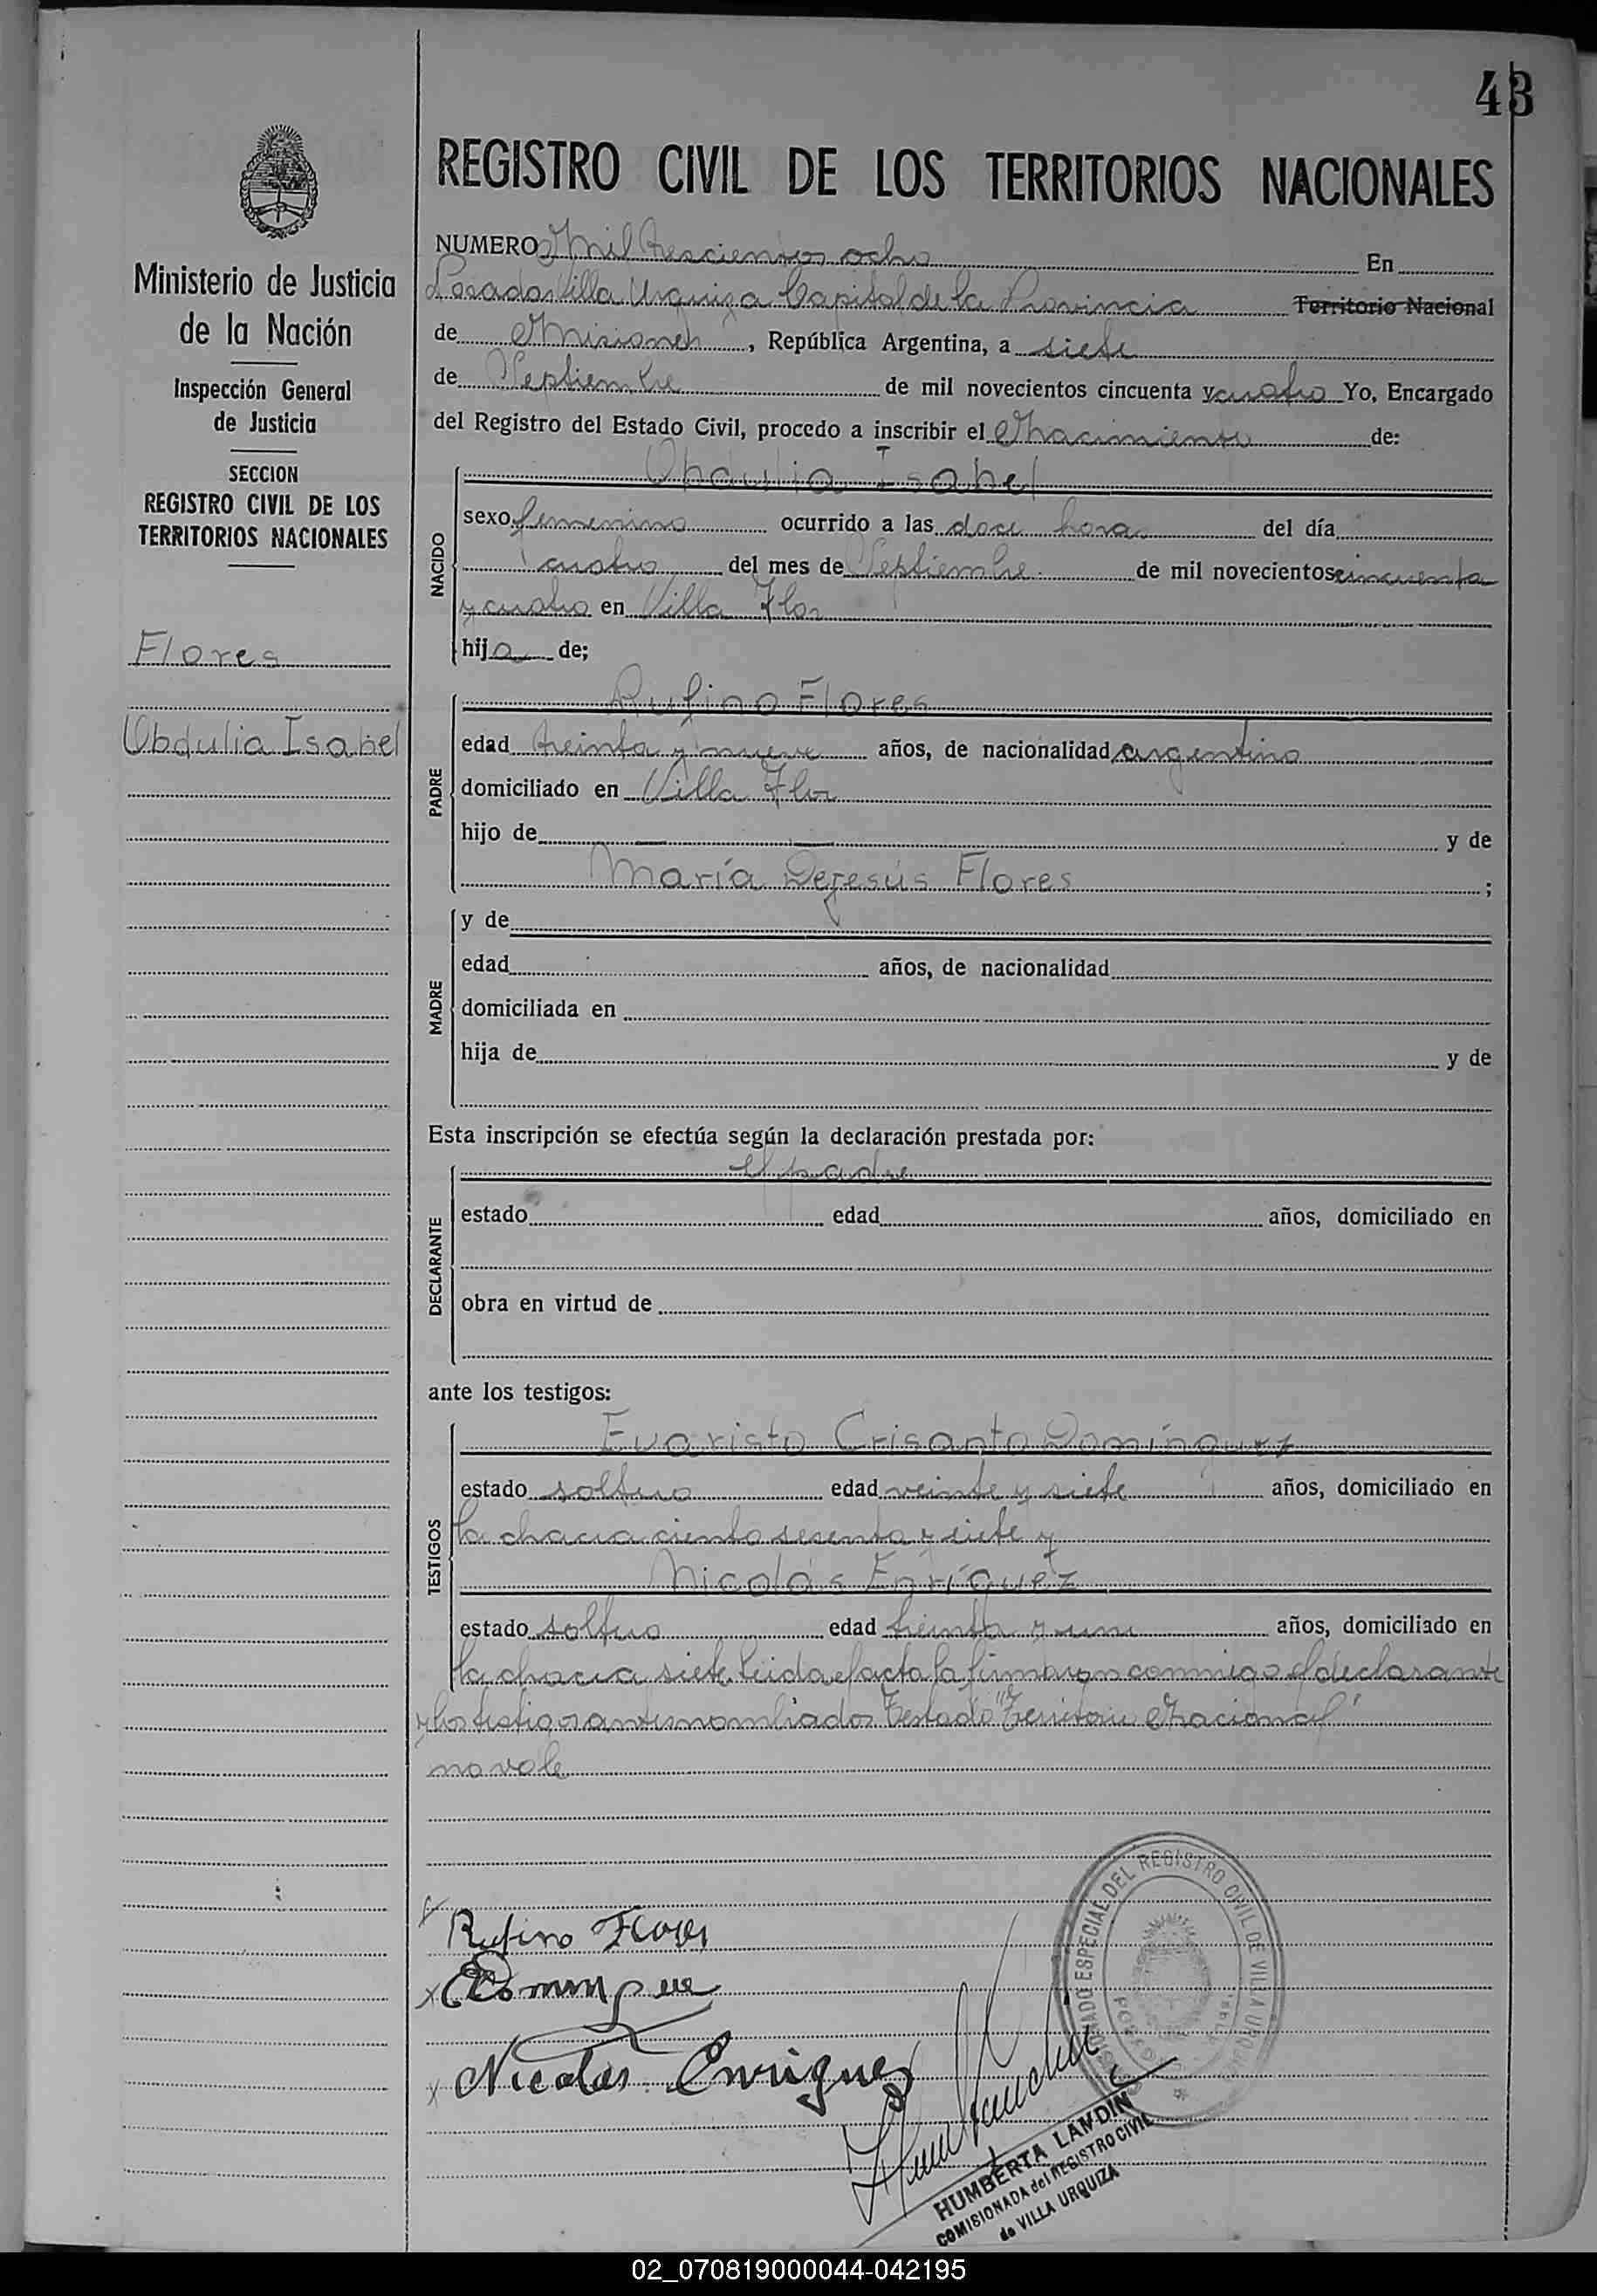 43
REGISTRO CIVIL DE LOS TERRITORIOS NACIONALES
Ministerio de Justicia
de la Nación
Inspección General
de Justicia
SECCION
REGISTRO CIVIL DE LOS
TERRITORIOS NACIONALES
Flores
Obdulia Isabel
NUMERO Mil trescientos ocho En
Posadas Villa Urquiza Capital de la Provincia Territorio Nacional
de Misiones, República Argentina, a siete
de Septiembre de mil novecientos cincuenta y cuatro Yo, Encargado
del Registro del Estado Civil, procedo a inscribir el Nacimiento de:
NACIDO
Obdulia Isabel
sexo femenino ocurrido a las doce horas del día
cuatro del mes de Septiembre de mil novecientos cincuenta
y cuatro en Villa Flor
hija de;
PADRE
Rufino Flores
edad treinta y nueve años, de nacionalidad argentino
domiciliado en Villa Flor
hijo de — — y de
María Dejesús Flores ;
MADRE
y de
edad años, de nacionalidad
domiciliada en
hija de y de
Esta inscripción se efectúa según la declaración prestada por:
DECLARANTE
el padre
estado edad años, domiciliado en
obra en virtud de
ante los testigos:
TESTIGOS
Evaristo Crisanto Domínguez
estado soltero edad veinte y siete años, domiciliado en
la chacra ciento sesenta y siete y
Nicolás Enríquez
estado soltero edad treinta y uno años, domiciliado en
la chacra siete leida el acta la firmaron conmigo el declarante
y los testigos antes nombrados Testado "Territorio Nacional"
no vale
Rufino Flores
Nicolas Enriquez
ESPECIAL DEL REGISTRO CIVIL DE VILLA URQUIZA
HUMBERTA LANDIN
COMISIONADA del REGISTRO CIVIL
de VILLA URQUIZA
02_070819000044-042195